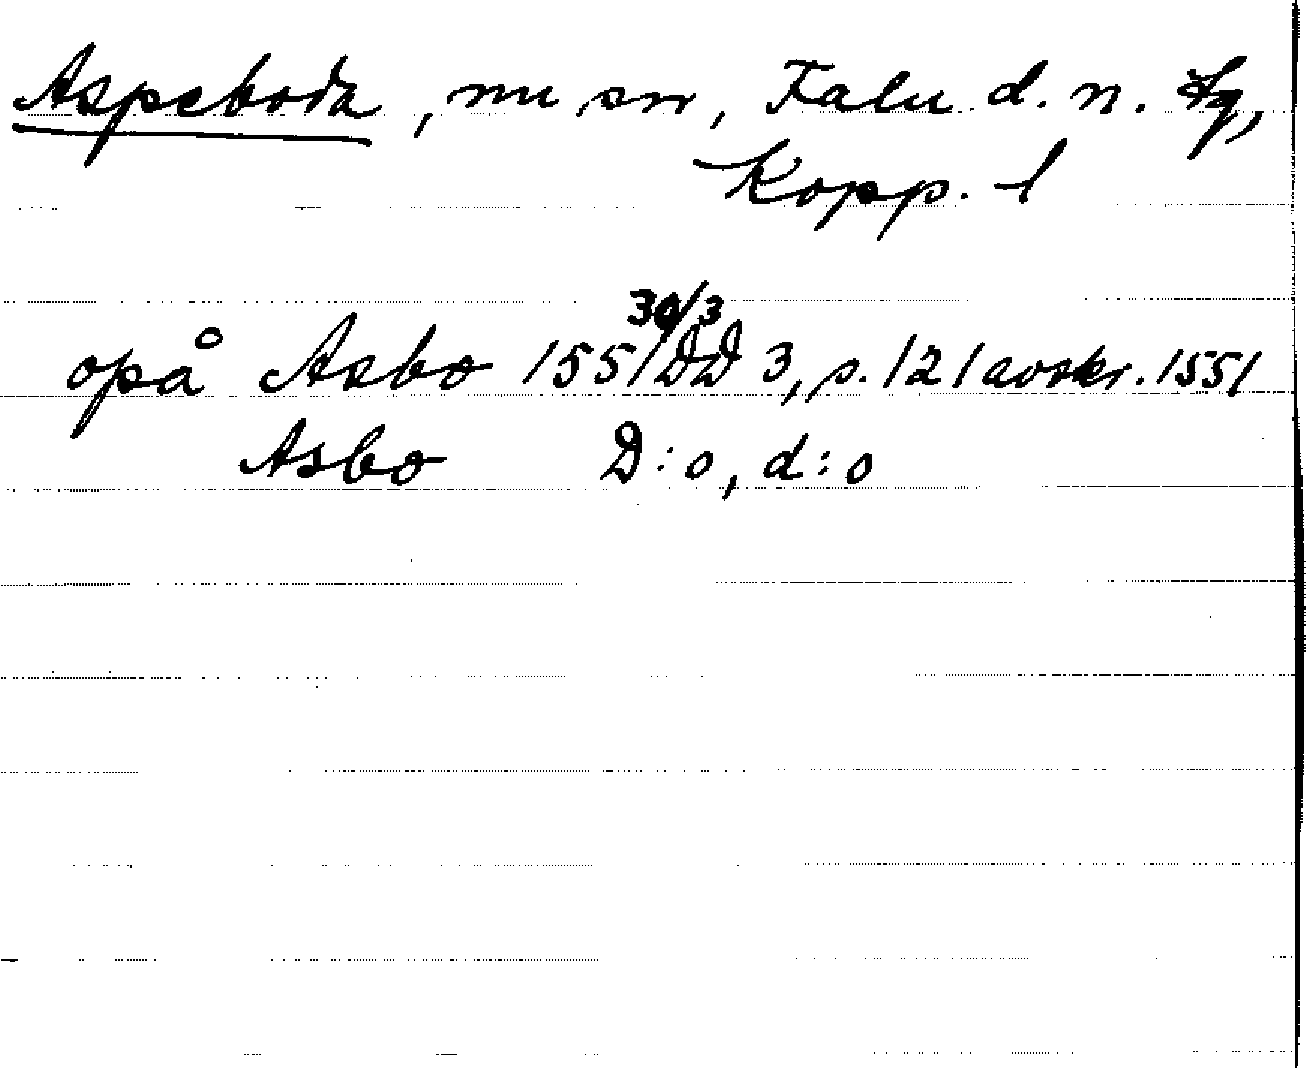 Aspeboda, nu sn, Falu d. n. tg,
Kopp. l
30/3
opå Asbo 1551 DD 3, s. 121 avskr. 1551
Asbo D:o, d:o